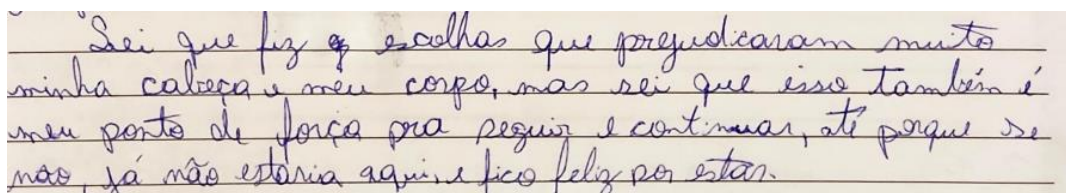 Sei que fiz escolhas que prejudicaram muito
minha cabeça e meu corpo, mas sei que isso também é
meu ponto de força pra seguir e continuar, até porque se
não, já não estaria aqui, e fico feliz por estar.